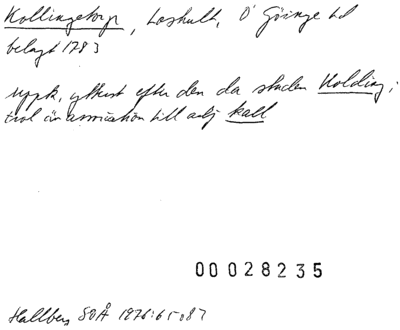 Kollingetorp, Loshult, Ö Göinge hd
belagt 1783
uppk, ytterst efter den da staden Kolding;
trol ån association till adj kall
00028235
Hallberg SOÅ 1976:65 o 87